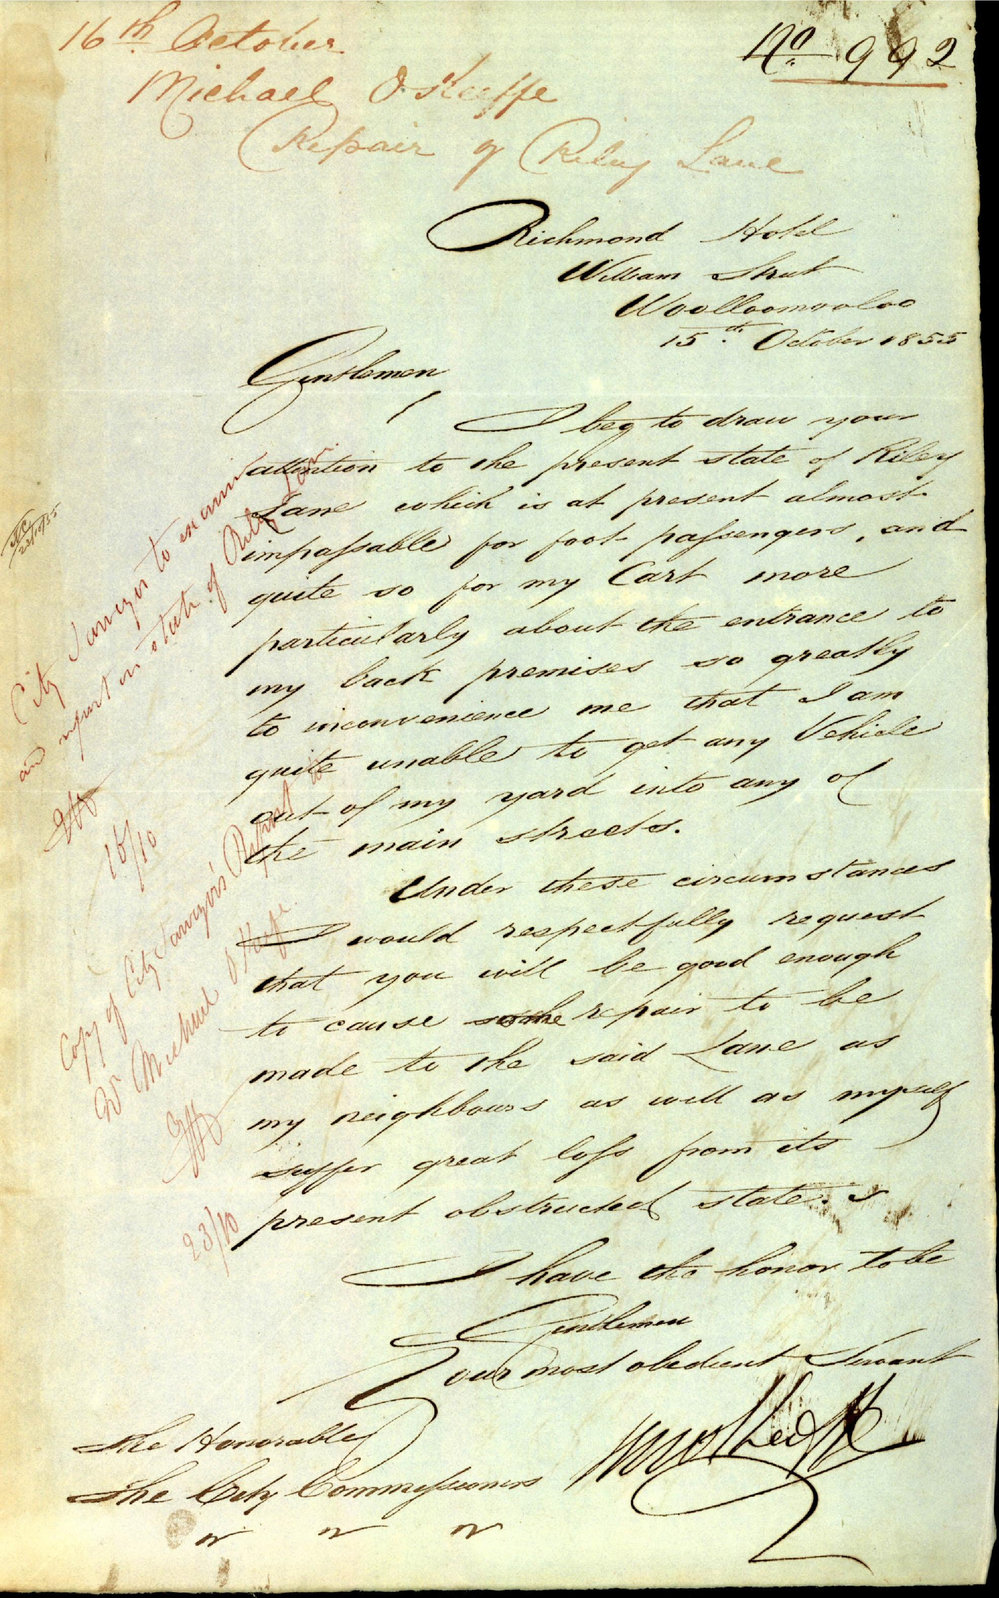 16th October
No. 992
Michael O'Keeffe
Repair of Riley Lane
Richmond Hotel
William Street
Woolloomooloo
15th October 1855
Gentlemen,
I beg to draw your
attention to the present state of Riley
Lane which is at present almost
impassable for foot passengers, and
quite so for my Cart more
particularly about the entrance to
my back premises so greatly
to inconvenience me that I am
quite unable to get any Vehicle
out of my yard into any of
the main streets.
Under these circumstances
I would respectfully request
that you will be good enough
to cause some repair to be
made to the said Lane as
my neighbours as well as myself
suffer great loss from its
present obstructed state.
I have the honor to be
Gentlemen
Your most obedient Servant
The Honorable
The City Commissioners
City Surveyor to examine
and report on state of Riley Lane
16/10
Copy of City Surveyor's Report to
Mr Michael O'Keefe.
23/10